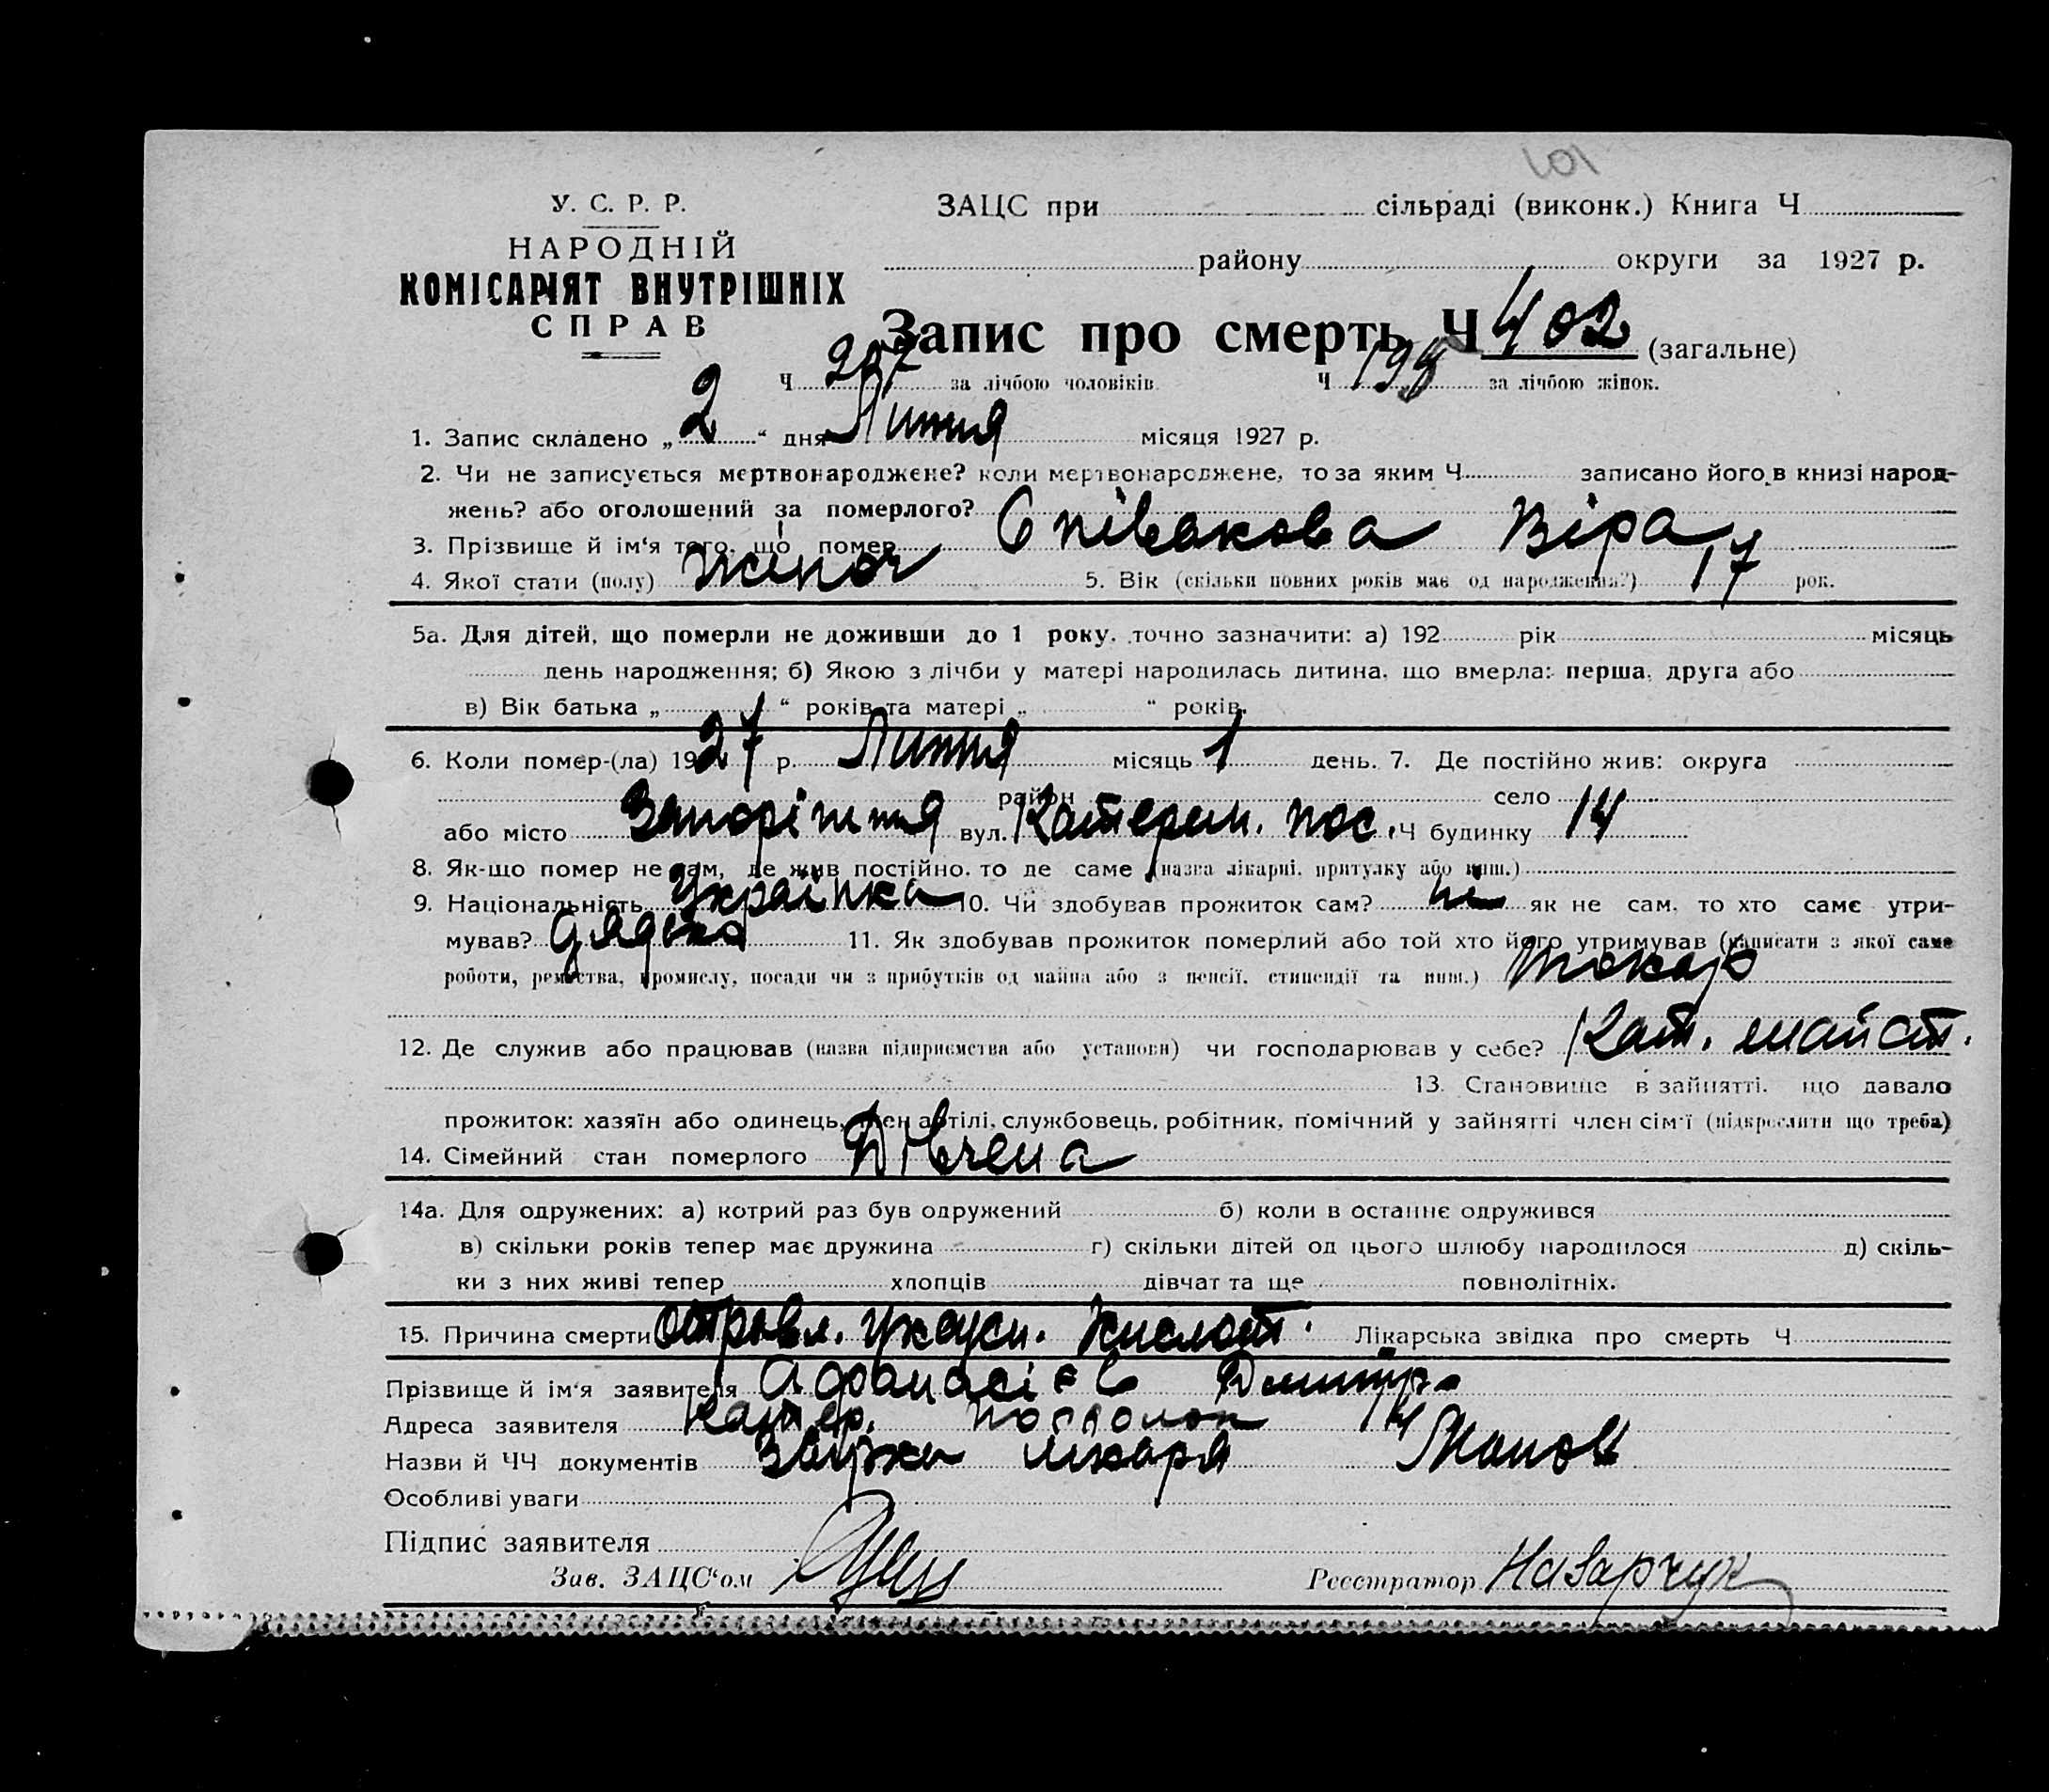 101
У. С. Р. Р.
НАРОДНІЙ
КОМІСАРІЯТ ВНУТРІШНІХ
СПРАВ
ЗАЦС при сільраді (виконк.) Книга Ч
району округи за 1927 р.
Запис про смерть Ч 402 (загальне)
Ч за лічбою чоловіків Ч за лічбою жінок.
1. Запис складено „2“ дня Липня місяця 1927 р.
2. Чи не записується мертвонароджене? коли мертвонароджене, то за яким Ч записано його в книзі народ-
жень? або оголошений за померлого?
3. Прізвище й ім'я того, що помер Співакова Віра
4. Якої стати (полу) жіноч 5. Вік (скільки повних років має од народження?) 17 рок.
5а. Для дітей, що померли не доживши до 1 року, точно зазначити: а) 192 рік місяць
день народження; б) Якою з лічби у матері народилась дитина, що вмерла: перша, друга або
в) Вік батька „ “ років та матері „ “ років.
6. Коли помер-(ла) 1927 р. Липня місяць 1 день. 7. Де постійно жив: округа
район село
або місто Запоріжжя вул. Катерин. пос. Ч будинку 14
8. Як-що помер не там, де жив постійно, то де саме (назва лікарні, притулку або инш.)
9. Національність Українка 10. Чи здобував прожиток сам? ні як не сам, то хто саме утри-
мував? Дядько 11. Як здобував прожиток померлий або той хто його утримував (написати з якої саме
роботи, ремества, промислу, посади чи з прибутків од майна або з пенсії, стипендії та инш.) токарь
12. Де служив або працював (назва підприємства або установи) чи господарював у себе? Кат. майст.
13. Становище в зайнятті, що давало
прожиток: хазяїн або одинець, член артілі, службовець, робітник, помічний у зайнятті член сім'ї (підкреслити що треба)
14. Сімейний стан померлого Дівчена
14а. Для одружених: а) котрий раз був одружений б) коли в останнє одружився
в) скільки років тепер має дружина г) скільки дітей од цього шлюбу народилося д) скіль-
ки з них живі тепер хлопців дівчат та ще повнолітніх.
15. Причина смерти отравл. укусн. кислот. Лікарська звідка про смерть Ч
Прізвище й ім'я заявителя Афанасієв Дмитро
Адреса заявителя Катер. посьолок 14
Назви й ЧЧ документів лікаря
Особливі уваги
Підпис заявителя
Зав. ЗАЦС'ом Реєстратор Назарчук